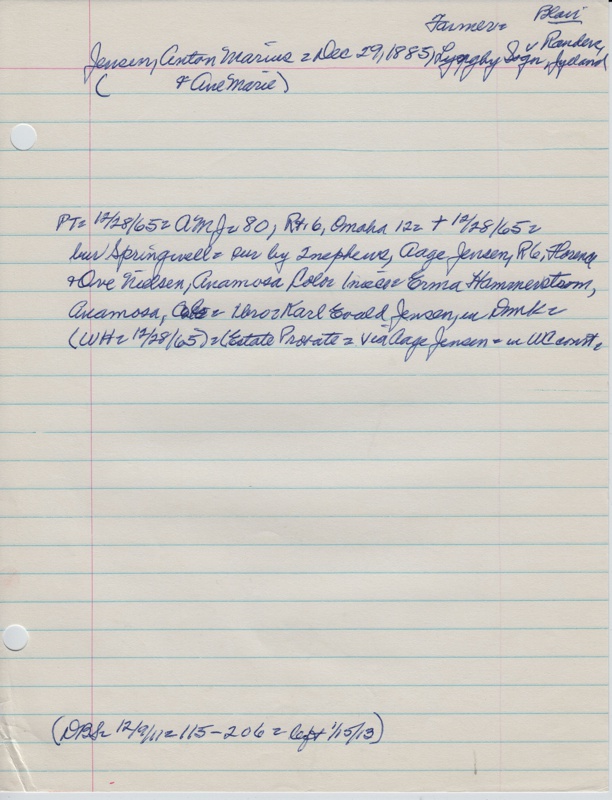 Farmer = Blair
Jensen, Anton Marius = Dec 29, 1885, Lyngby Sogn v Randers, Jylland
( & Ane Marie)
PT = 12/28/65 = AMJ = 80, Rt. 6, Omaha 12 = + 12/28/65 =
bur Springwell = sur by 2 nephews, Aage Jensen, R6, Florence
& Ove Nielsen, Anamosa Colo 1 niece = Erma Hammerstrom,
Anamosa, Colo = 1 bro = Karl Evald Jensen, in Dmk =
(WH = 12/28/65) = (Estate Probate = via Aage Jensen = in WC court =
(DBS = 12/9/11 = 115-206 = left 1/15/13)